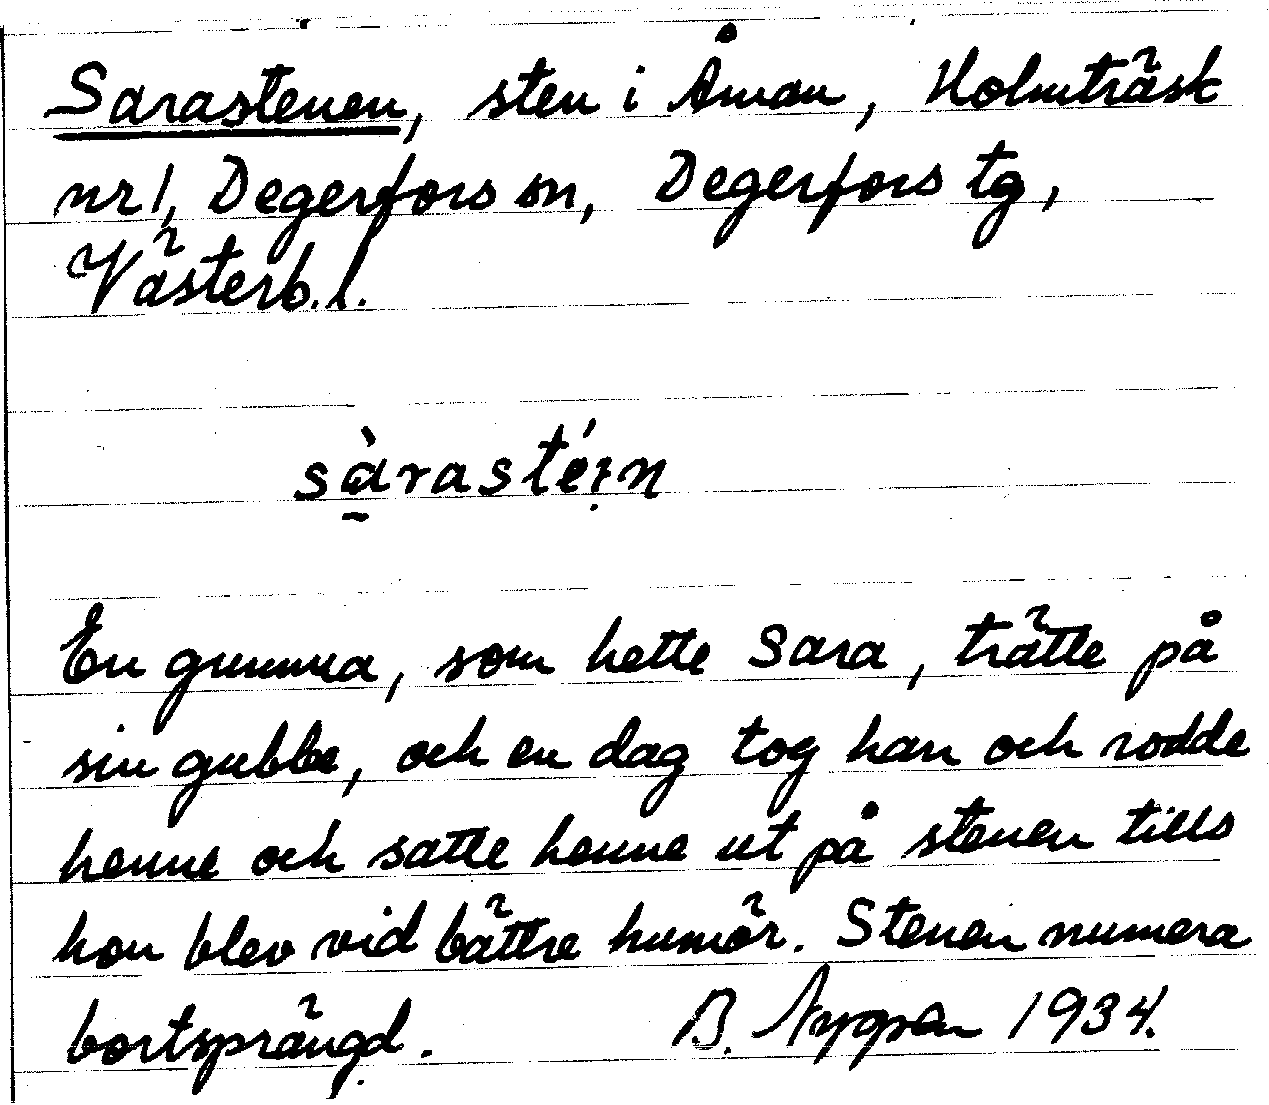 Sarastenen, sten i Åman, Holmträsk
nr 1, Degerfors sn, Degerfors tg,
Västerb. l.
sàrastén
En gumma, som hette Sara, trätte på
sin gubbe, och en dag tog han och rodde
henne och satte henne ut på stenen tills
hon blev vid bättre humör. Stenen numera
bortsprängd. B. 1934.